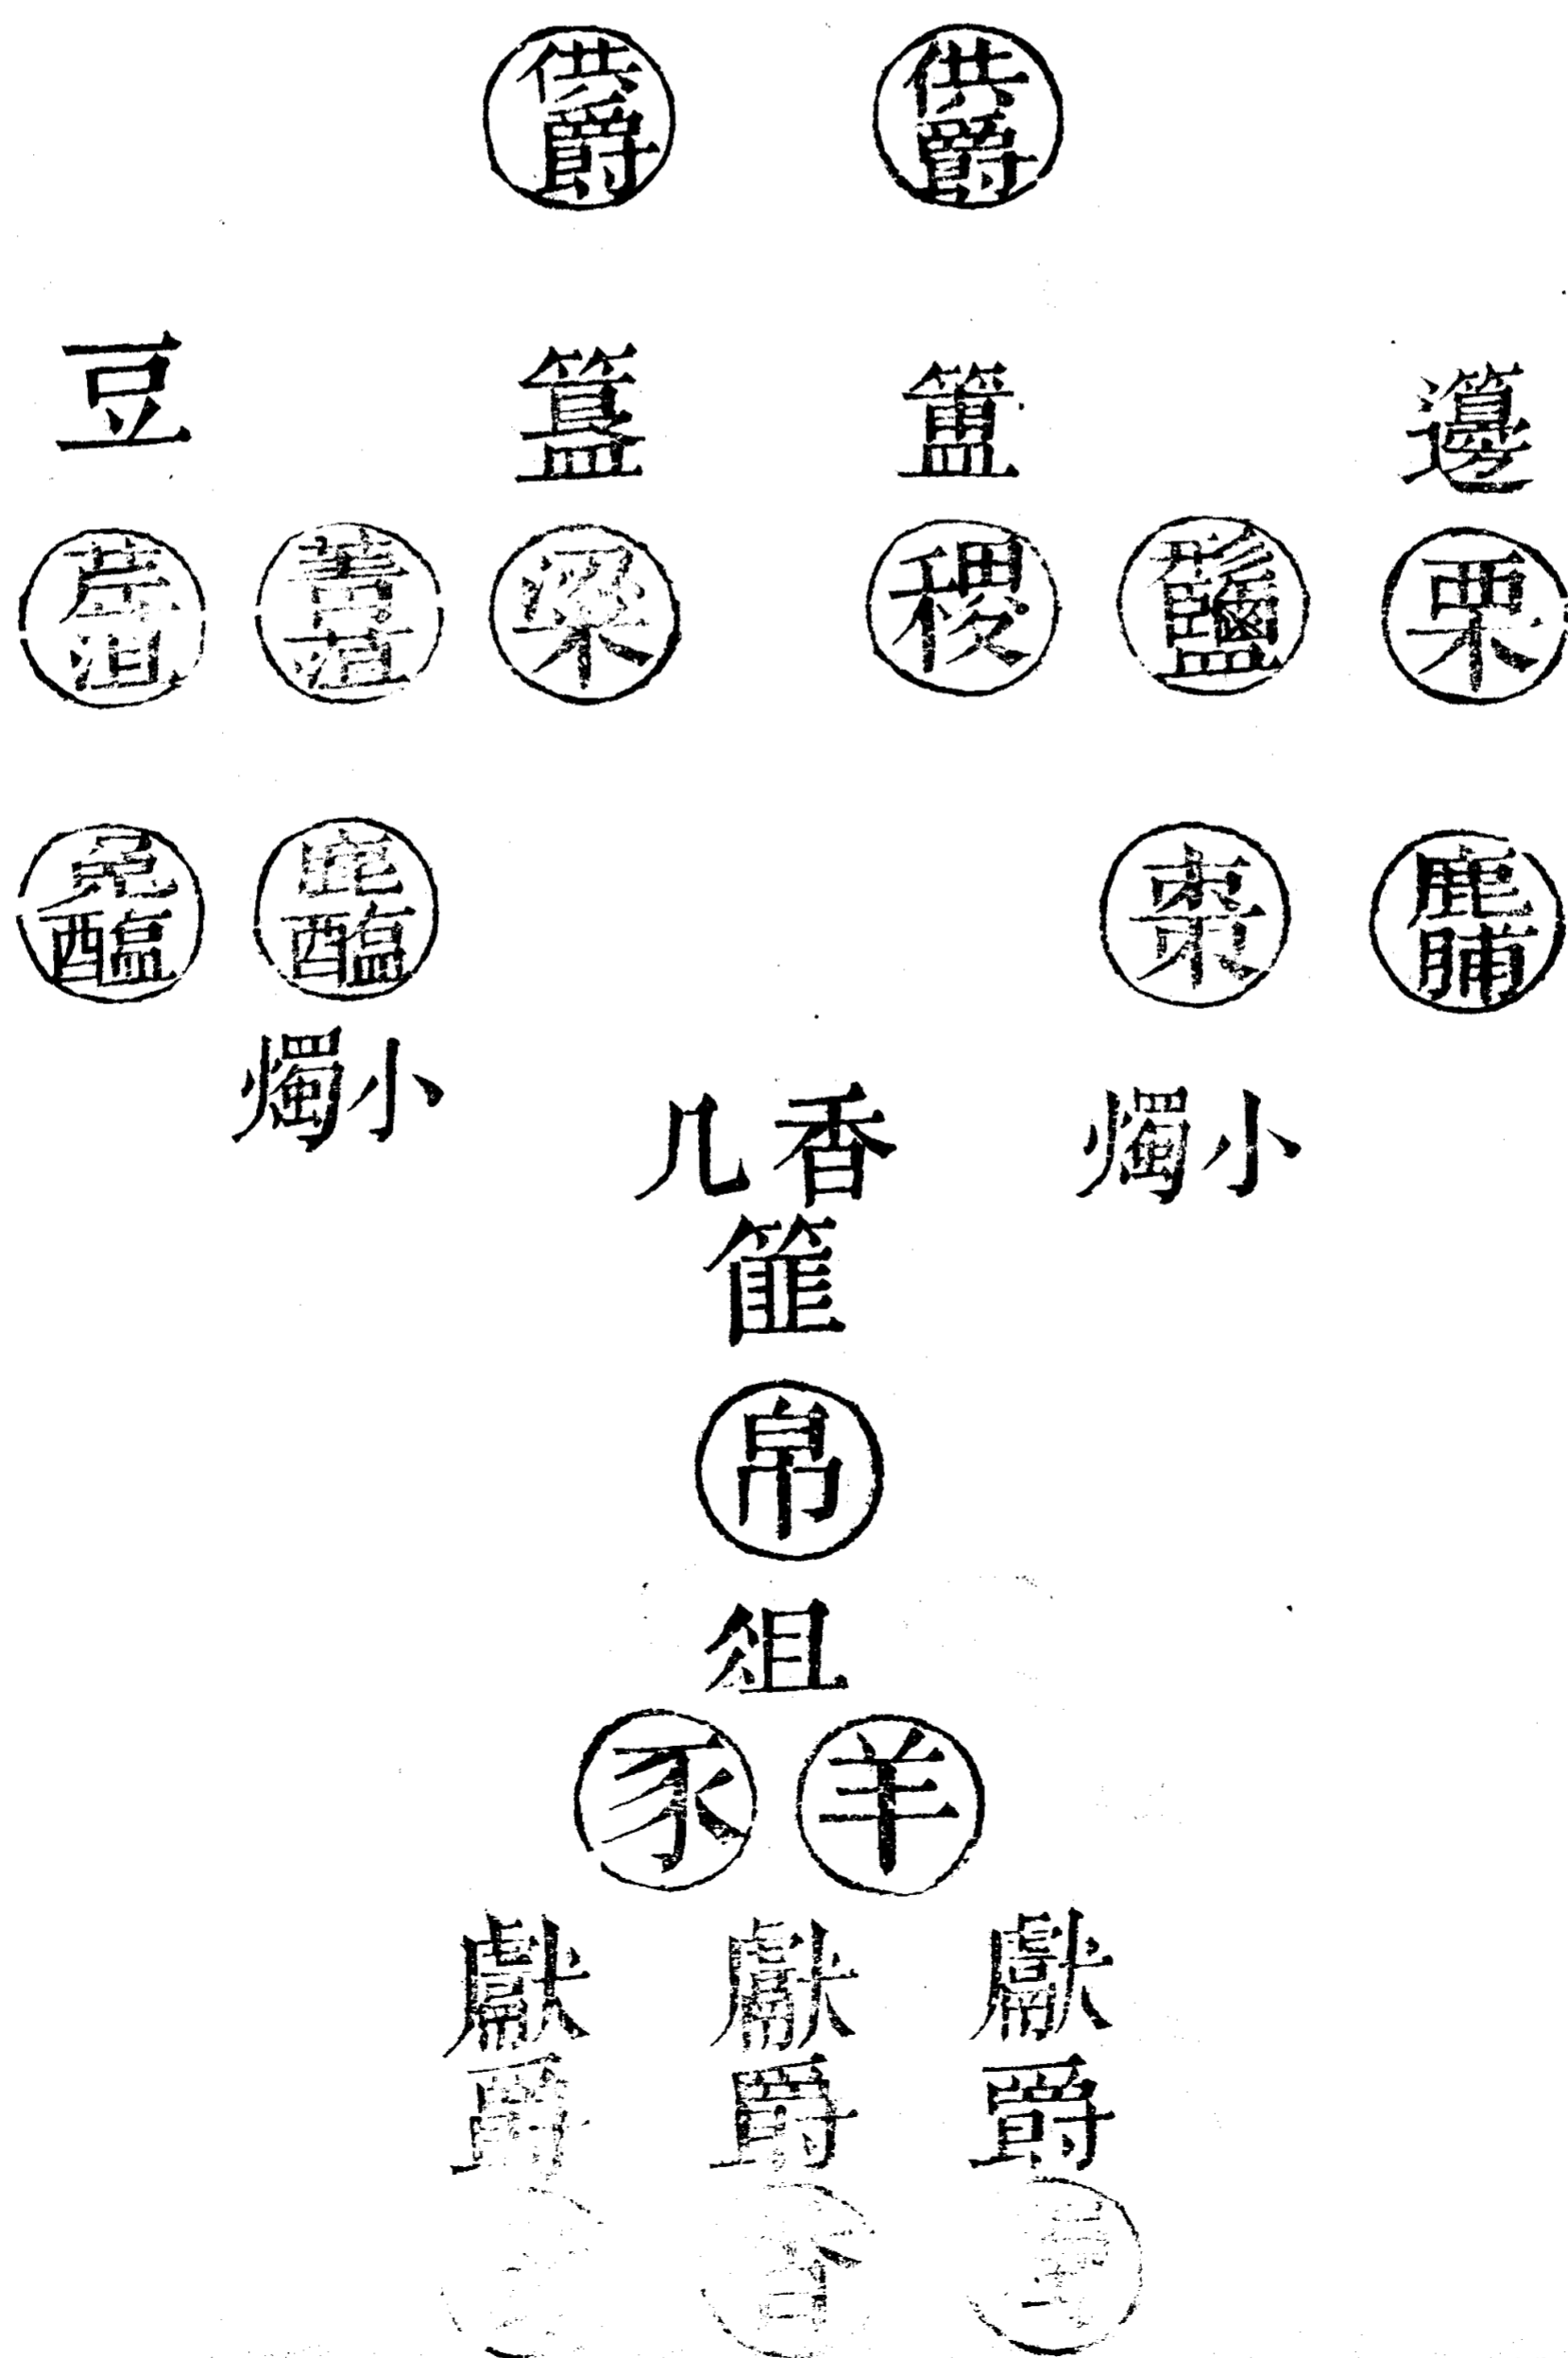 供爵
供爵
籩
簠
簋
豆
栗
形鹽
稷
梁
菁菹
芹菹
鹿脯
棗
鹿醢
兔醢
小燭
香几
小燭
篚
帛
俎
羊
豕
獻爵
獻爵
獻爵